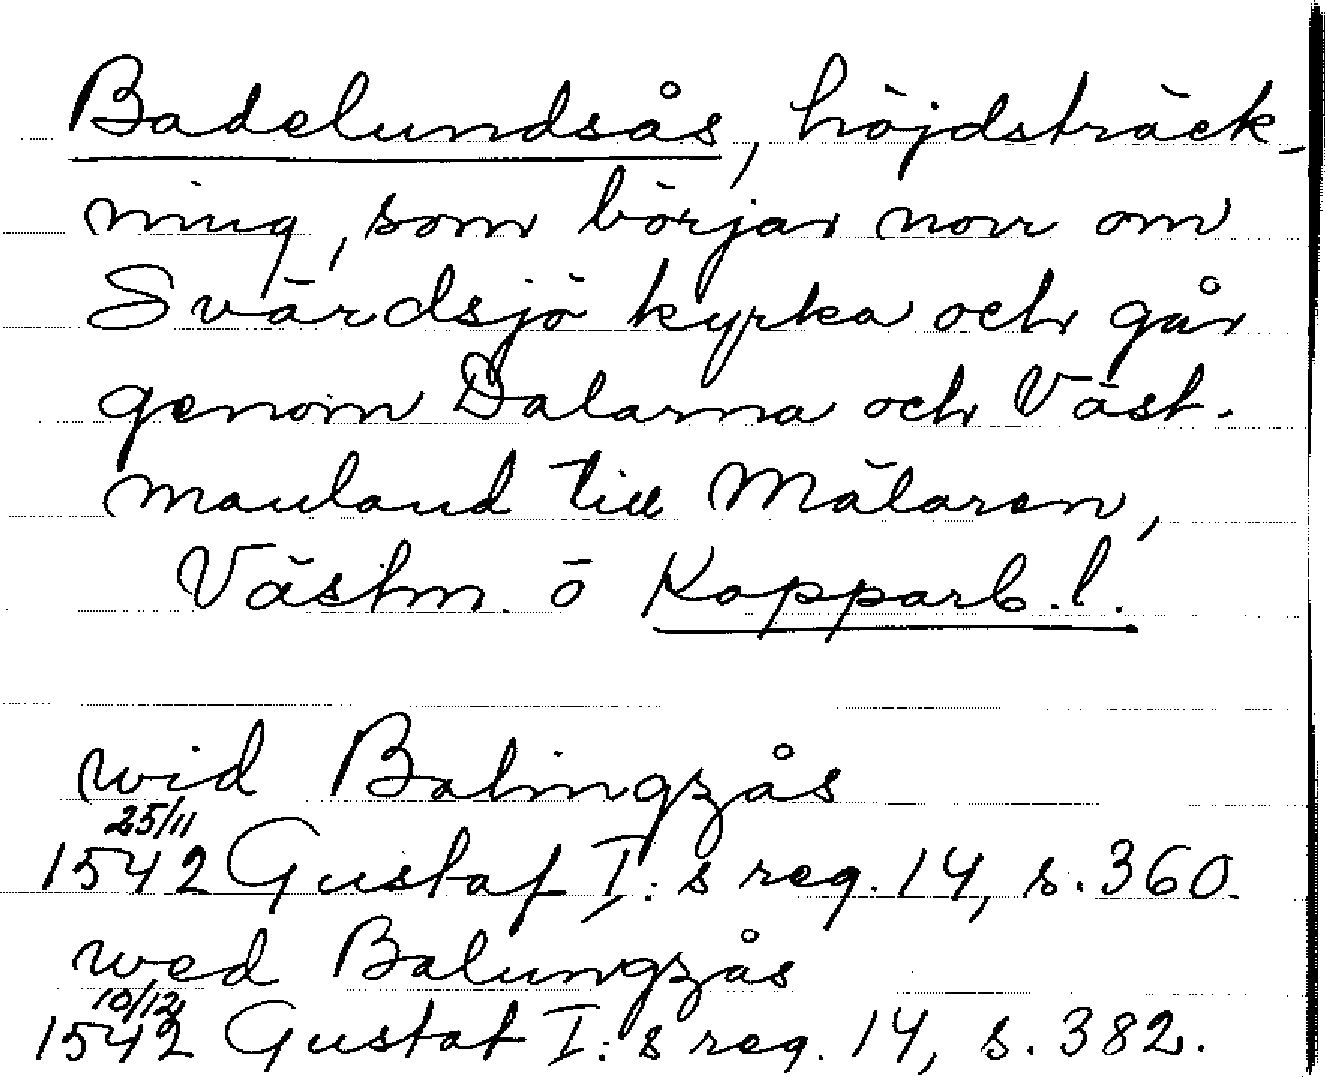 Badelundsås, höjdsträck-
ning, som börjar norr om
Svärdsjö kyrka och går
genom Dalarna och Väst-
manland till Mälaren,
Västm. o Kopparb. l.
wid Balingzås
25/11
1542 Gustaf I:s reg. 14, s. 360.
wed Balungzås
10/12
1542 Gustaf I:s reg. 14, s. 382.